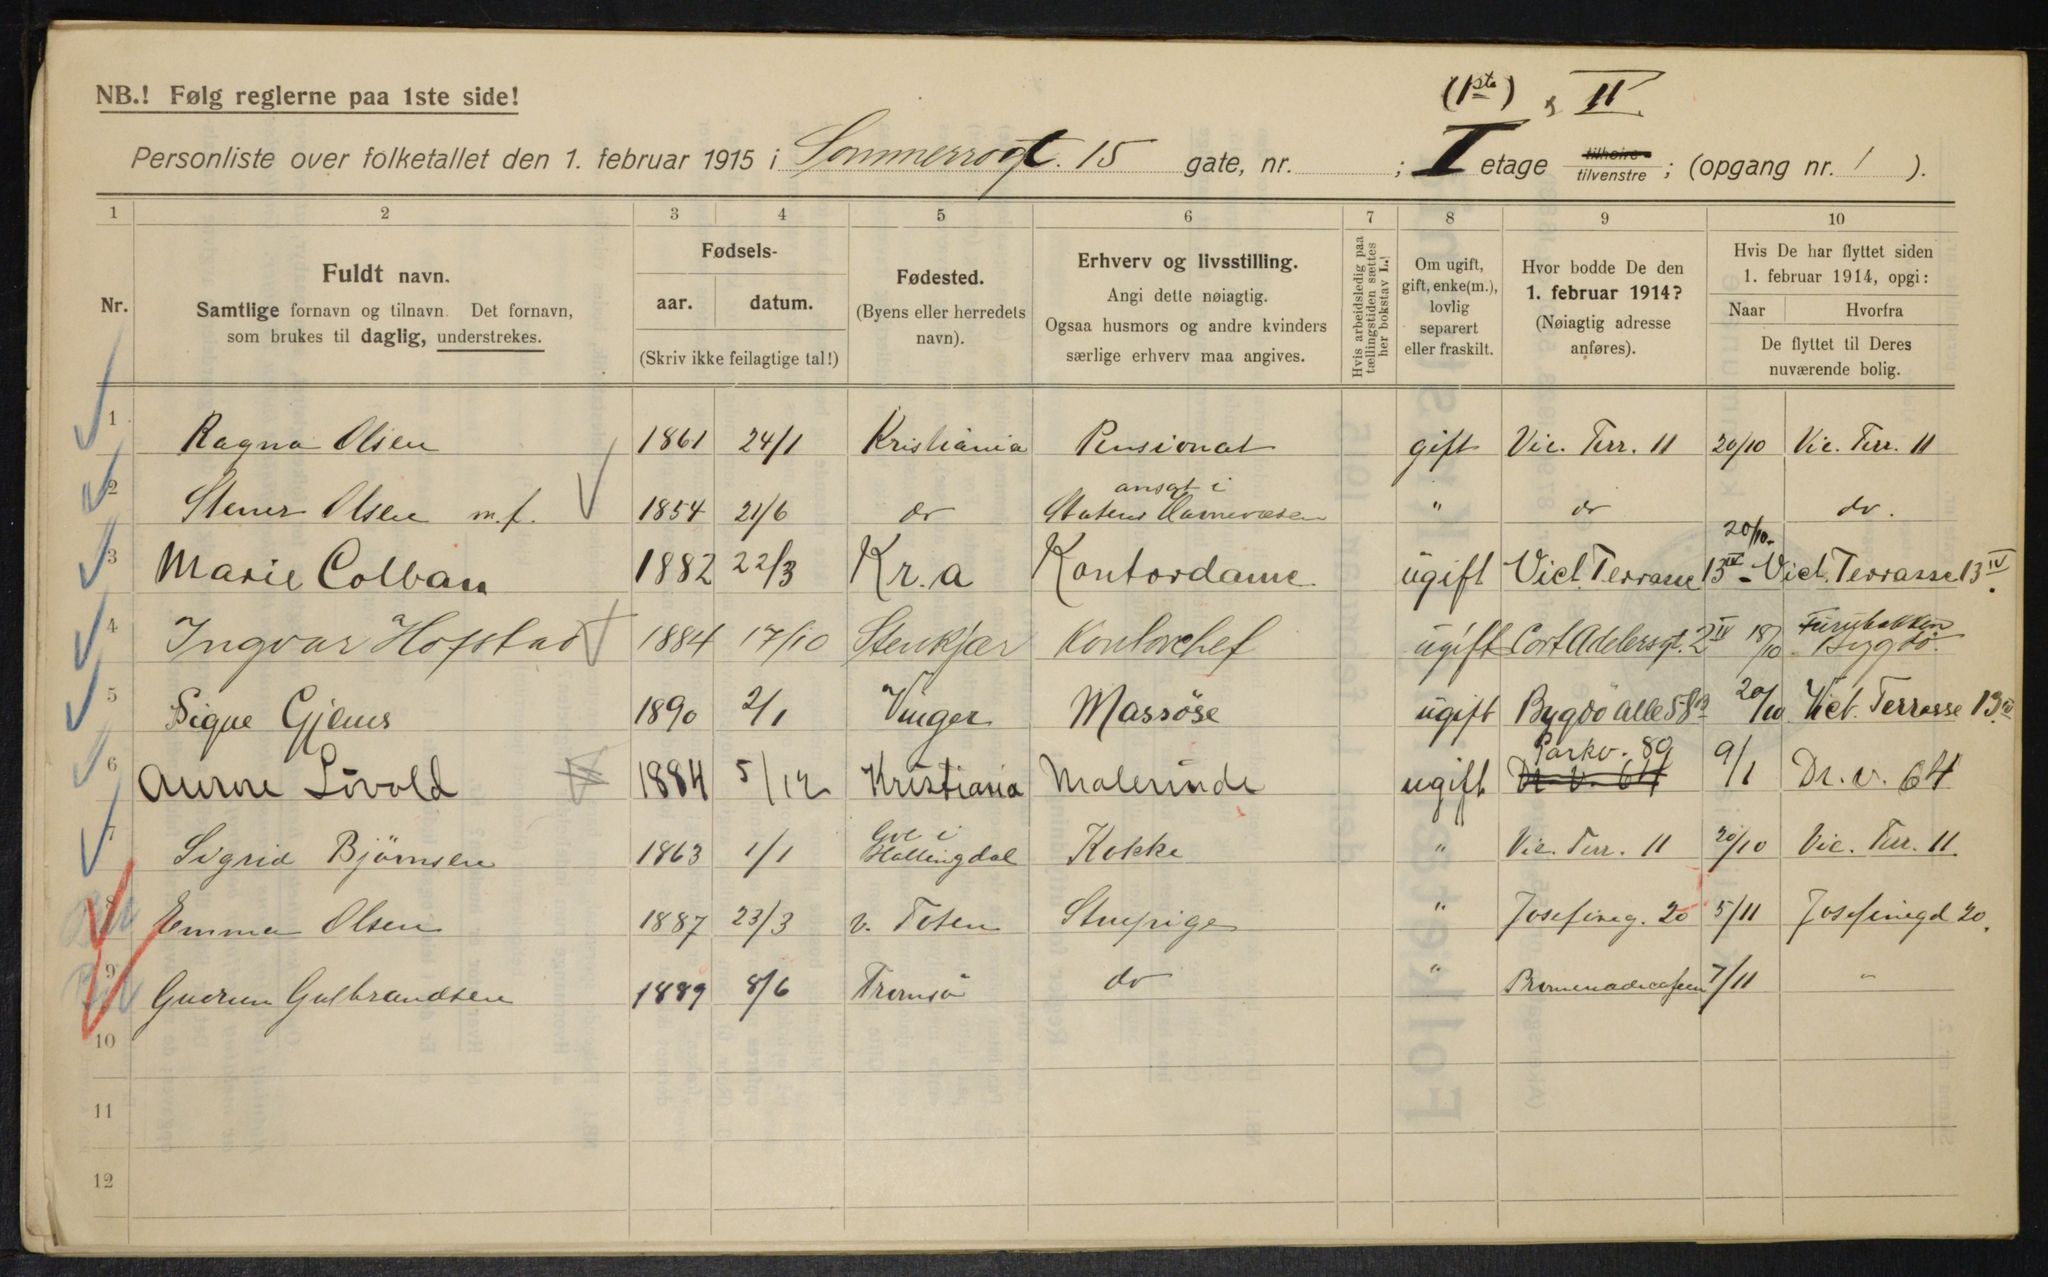 (1ste) & II
NB.! Følg reglerne paa 1ste side!
Personliste over folketallet den 1. februar 1915 i Sommerrogt. 15 gate, nr. ; I etage tilhøire tilvenstre ; (opgang nr. 1 ).
1 2 3 4 5 6 7 8 9 10
Nr.
Fuldt navn.
Samtlige fornavn og tilnavn. Det fornavn,
som brukes til daglig, understrekes.
Fødsels-
aar. datum.
(Skriv ikke feilagtige tal!)
Fødested.
(Byens eller herredets
navn).
Erhverv og livsstilling.
Angi dette nøiagtig.
Ogsaa husmors og andre kvinders
særlige erhverv maa angives.
Hvis arbeidsledig paa
tællingstiden sættes
her bokstav L.!
Om ugift,
gift, enke(m.),
lovlig
separert
eller fraskilt.
Hvor bodde De den
1. februar 1914?
(Nøiagtig adresse
anføres).
Hvis De har flyttet siden
1. februar 1914, opgi:
Naar Hvorfra
De flyttet til Deres
nuværende bolig.
1 Ragna Olsen 1861 24/1 Kristiania Pensionat gift Vic. Terr. 11 20/10 Vic. Terr. 11
2 Stener Olsen m.f. 1854 21/6 do ansat i Statens Havnevæsen " do do.
3 Marie Colban 1882 22/3 Kr.a Kontordame ugift Vict. Terrasse 13 IV 20/10 - Vict. Terrasse 13 IV
4 Ingvar Hofstad 1884 17/10 Stenkjær Kontorchef ugift Cort Adelersgt. 2 IV 18/10 Furubakken Bygdö.
5 Signe Gjems 1890 2/1 Vinger Massøse ugift Bygdö alle 58 B 20/10 Vict. Terrasse 13 IV
6 Aurore Lövold 1884 5/12 Kristiania Malerinde ugift Parkv. 89 Dr. v. 64 9/1 Dr. v. 64
7 Sigrid Bjørnsen 1863 1/1 Gol i Hallingdal Kokke " Vic. Terr. 11 20/10 Vic. Terr. 11.
8 Emma Olsen 1887 23/3 v. Toten Stuepige " Josefineg. 20 5/11 Josefinegd 20.
9 Gudrun Gulbrandsen 1889 8/6 Tromsö do " Promenadecafeen 7/11 "
10
11
12